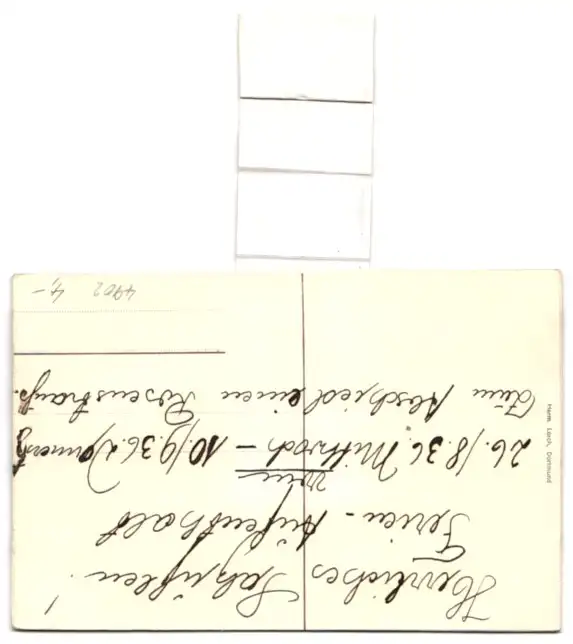 Herrliches Salzuflen!
Ferien-Aufenthalt
vom
26./8.36. Mittwoch – 10./9.36. Donnerstg
Zum Abschied einen Rosenstrauß.
4902 4,-
Herm. Lorch, Dortmund